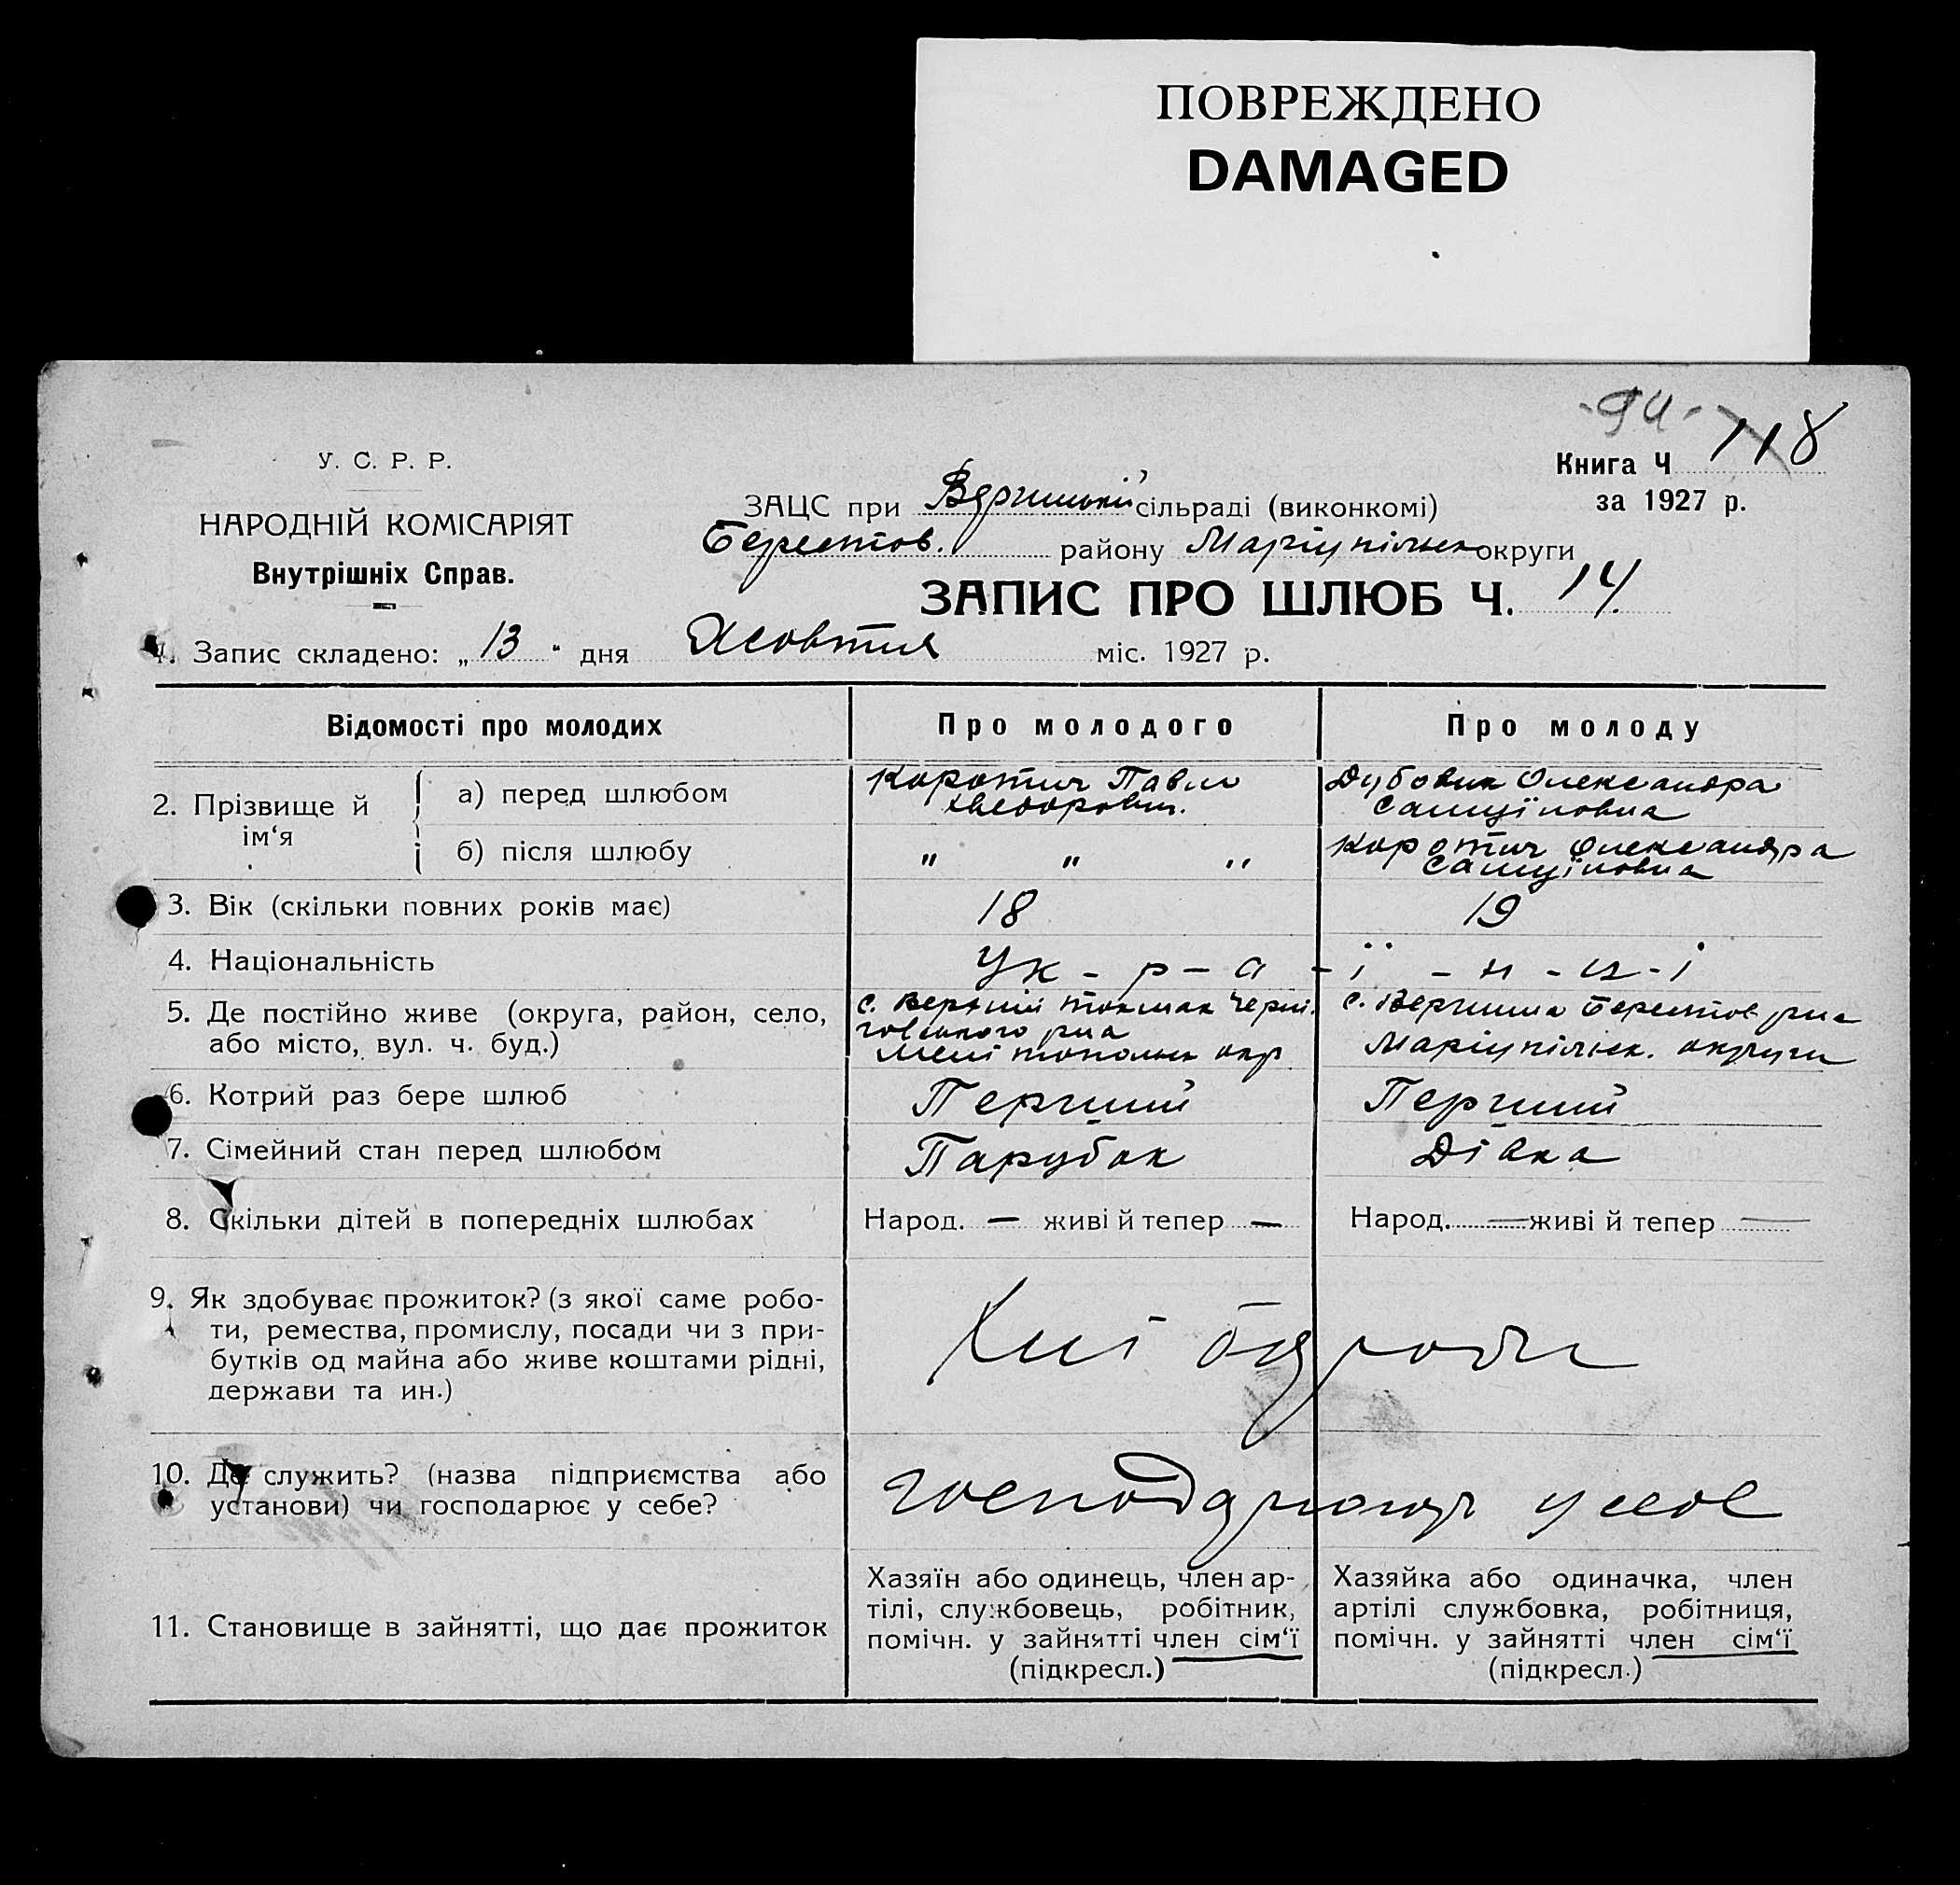 ПОВРЕЖДЕНО
DAMAGED
У. С. Р. Р.
НАРОДНІЙ КОМІСАРІЯТ
Внутрішніх Справ.
-94-
Книга Ч 118
за 1927 р.
ЗАЦС при Вершинській сільраді (виконкомі)
Берестов. району Маріупільськ округи
ЗАПИС ПРО ШЛЮБ Ч. 14.
1. Запис складено: „ 13 " дня Жовтня міс. 1927 р.
Відомості про молодих
Про молодого
Про молоду
2. Прізвище й ім‘я
а) перед шлюбом
Коротич Павло
Хведорович.
Дубовик Олександра
Самуїловна
б) після шлюбу
" " "
Коротич Олександра
Самуїловна
3. Вік (скільки повних років має)
18
19
4. Національність
Ук - р - а - ї - н - ц - і
5. Де постійно живе (округа, район, село,
або місто, вул. ч. буд.)
с. Верхній Токмак Черні-
говського р-на
Мелітопольськ окр
с. Вершина Берестов р-на
Маріупільск. округи
6. Котрий раз бере шлюб
Перший
Перший
7. Сімейний стан перед шлюбом
Парубок
Дівка
8. Скільки дітей в попередніх шлюбах
Народ. — живі й тепер —
Народ. — живі й тепер —
9. Як здобуває прожиток? (з якої саме робо-
ти, ремества, промислу, посади чи з при-
бутків од майна або живе коштами рідні,
держави та ин.)
Хлібороби
10. Де служить? (назва підприємства або
установи) чи господарює у себе?
господарюють у себе
11. Становище в зайнятті, що дає прожиток
Хазяїн або одинець, член ар-
тілі, службовець, робітник,
помічн. у зайнятті член сім‘ї
(підкресл.)
Хазяйка або одиначка, член
артілі службовка, робітниця,
помічн. у зайнятті член сім‘ї
(підкресл.)